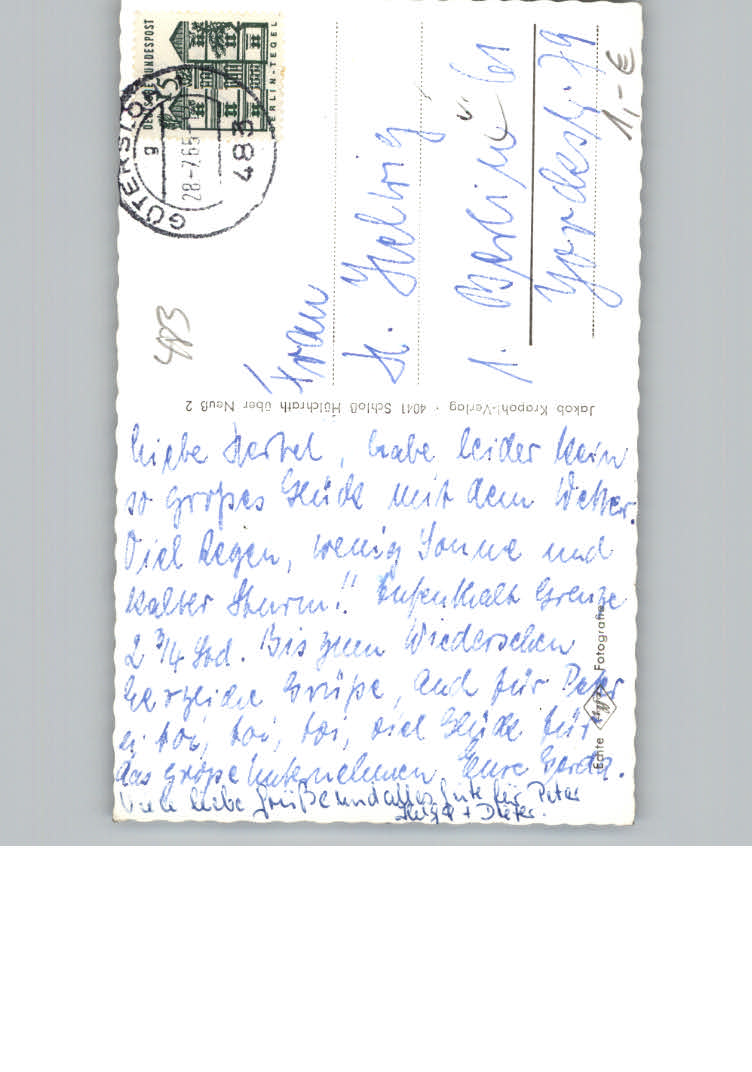 DEUTSCHE BUNDESPOST
BERLIN-TEGEL
GÜTERSLOH
483
28-7.65-15
g
483
1,- €
Frau
H. Helwig
1 Berlin 61
Yorckstr. 79
Jakob Krapohl-Verlag · 4041 Schloß Hülchrath über Neuß 2
Echte Agfa Fotografie
Liebe Herbel, habe leider kein
so großes Glück mit dem Wetter.
Viel Regen, wenig Sonne und
kalter Sturm!! Aufenthalt Grenze
2 3/4 Std. Bis zum Wiedersehen
herzliche Grüße, und für Peter
toi, toi, toi, viel Glück für
das große Unternehmen Eure Gerda.
Viele liebe Grüße und alles Gute für Peter
Helga + Dieter.